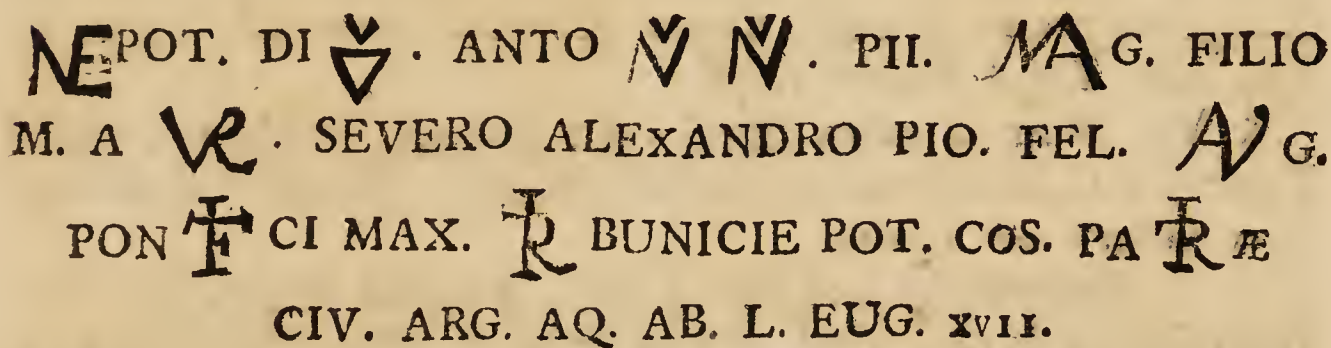 NEPOT. DIVV. ANTO NV NV. PII. MAG. FILIO
M. A VR. SEVERO ALEXANDRO PIO. FEL. AVG.
PON TIF CI MAX. TRI BUNICIE POT. COS. PA TRI Æ
CIV. ARG. AQ. AB. L. EUG. XVII.